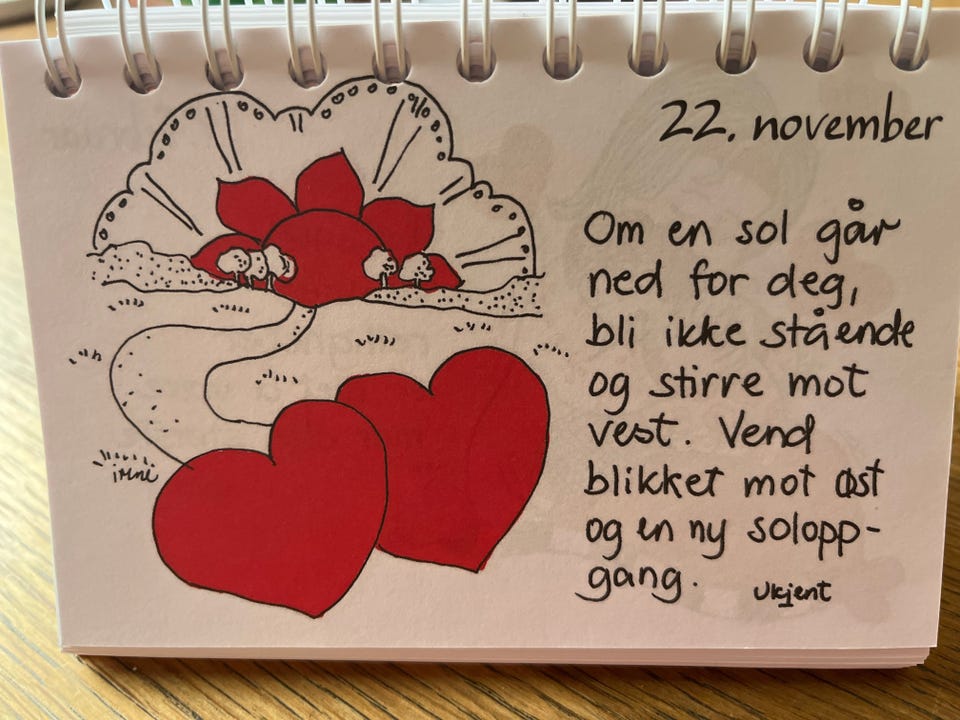 22. november
Om en sol går
ned for deg,
bli ikke stående
og stirre mot
vest. Vend
blikket mot øst
og en ny solopp-
gang.
Ukjent
irini